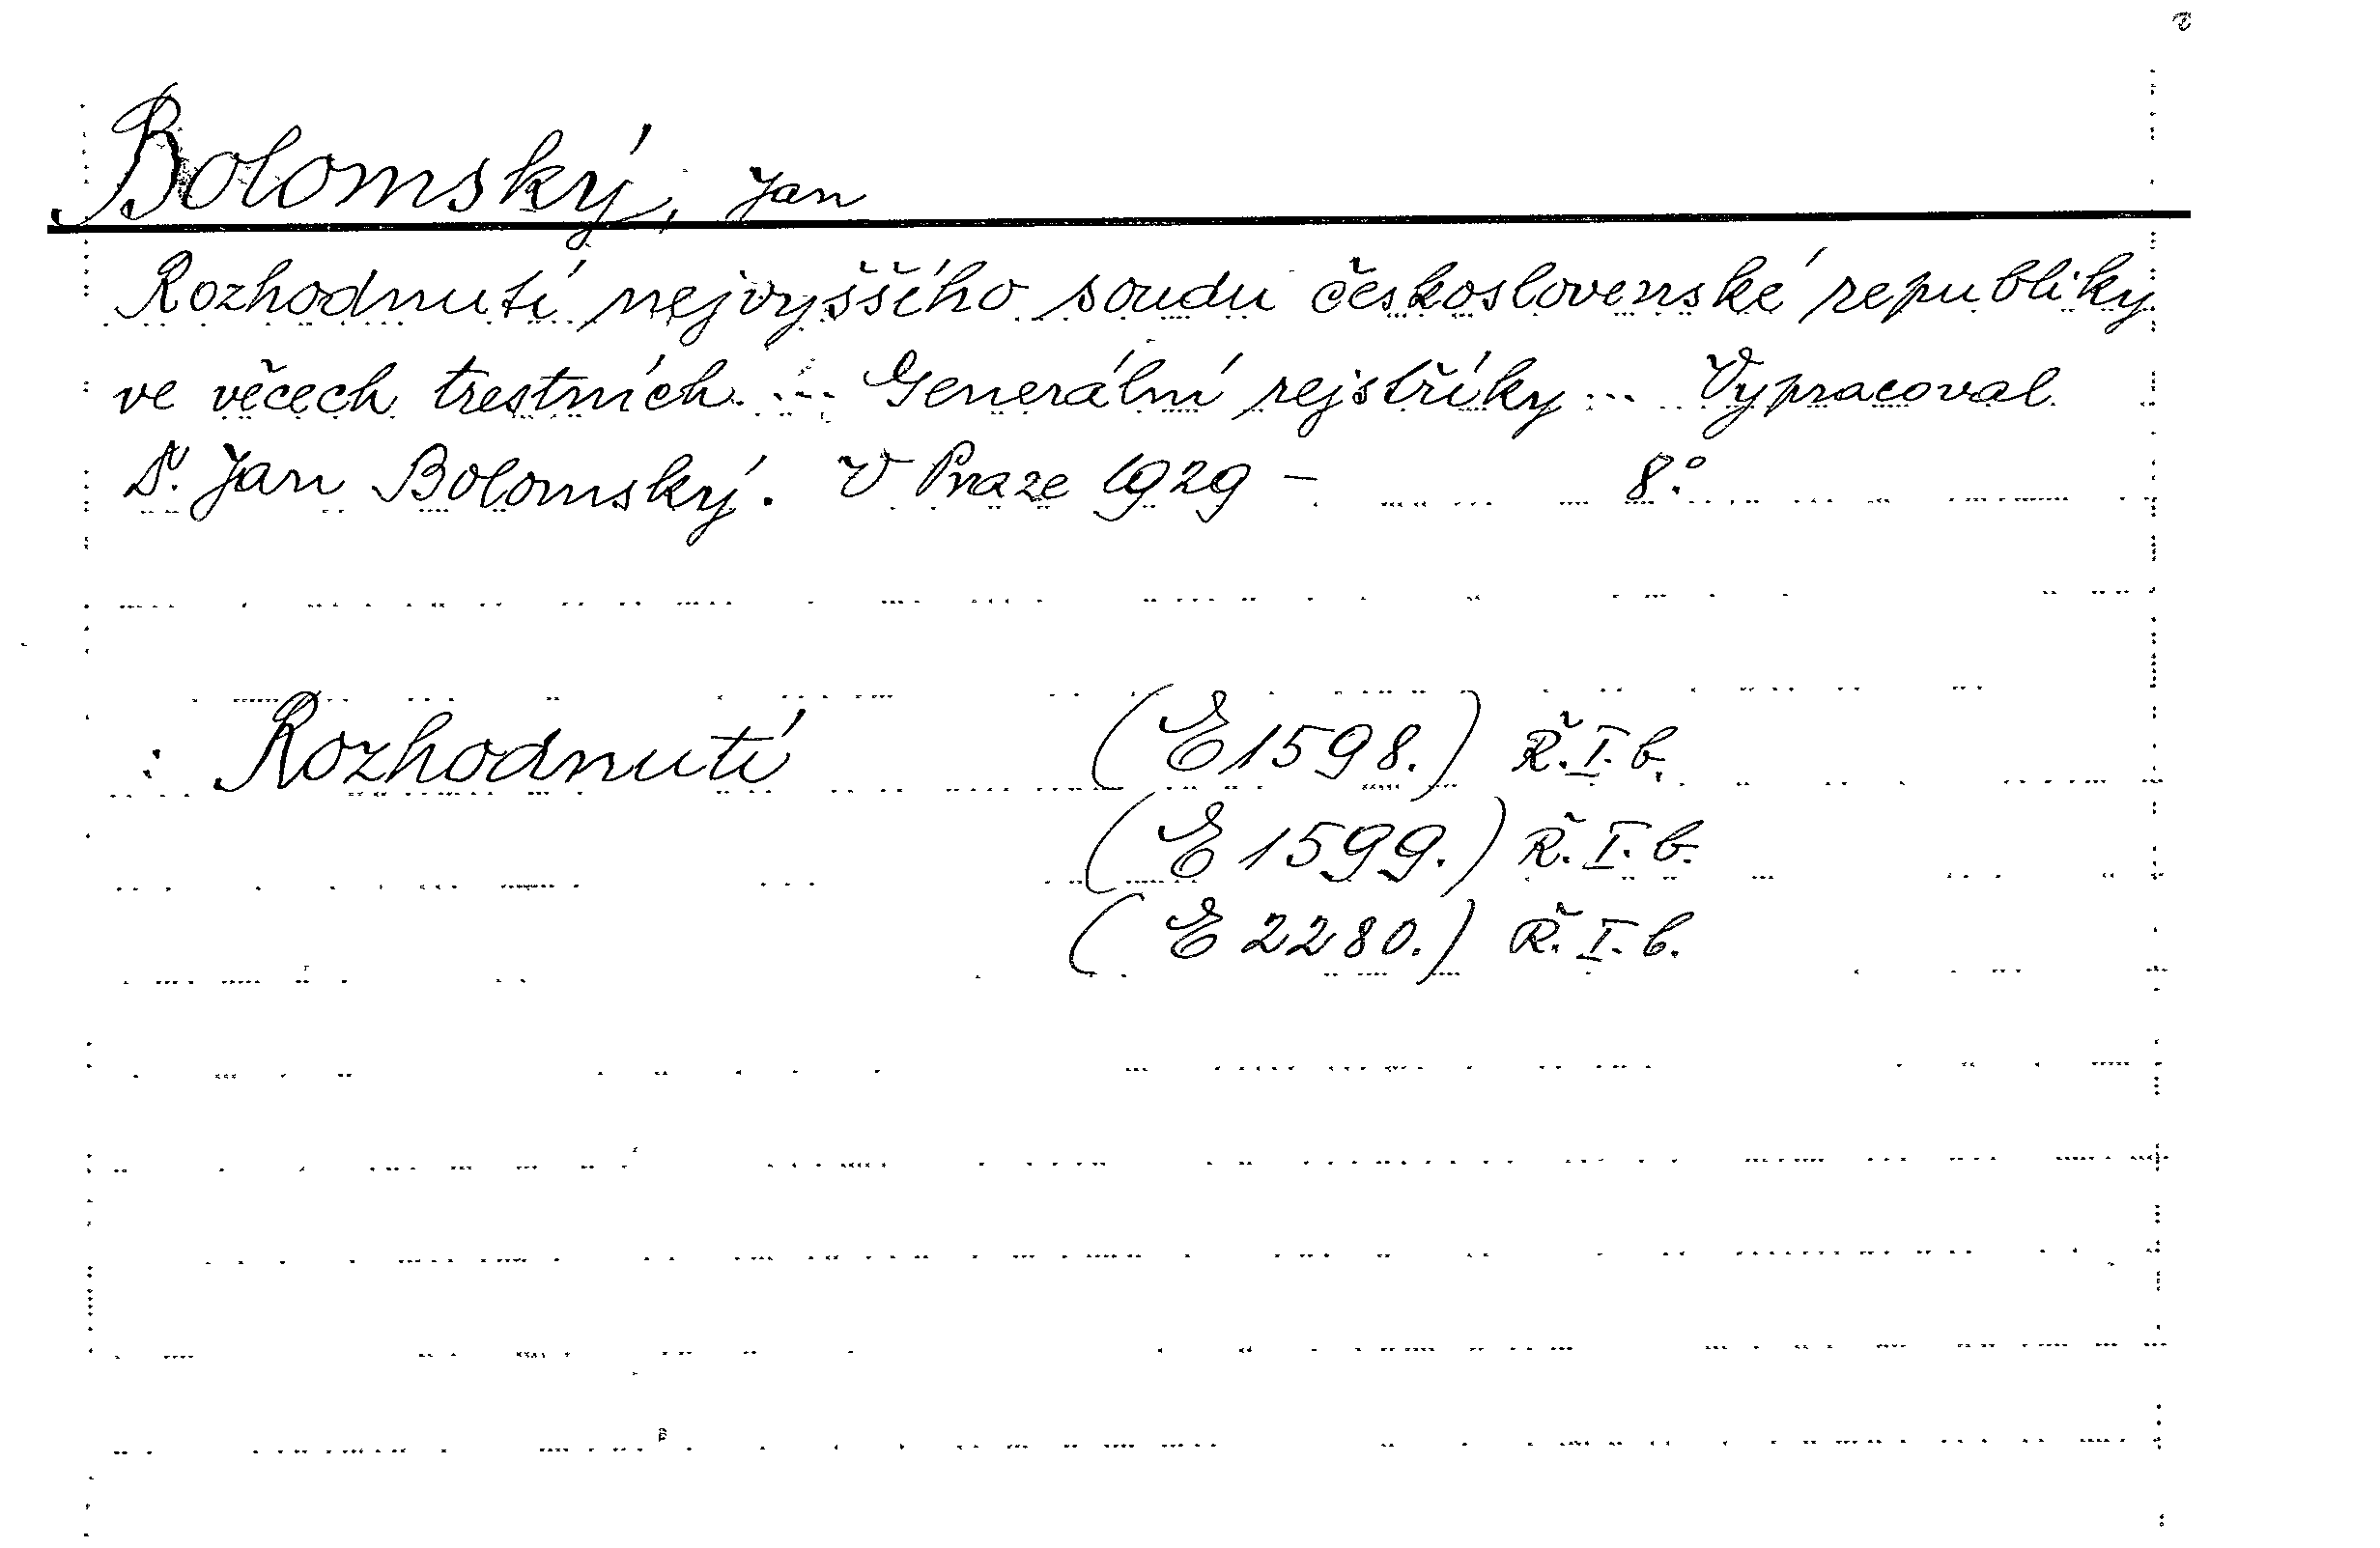 Bolomský, Jan
Rozhodnutí nejvyššího soudu československé republiky
ve věcech trestních ... Generální rejstříky ... Vypracoval
Dr. Jan Bolomský. V Praze 1929 – 8°.
: Rozhodnutí (E 1598.) Ř. I. b.
(E 1599.) Ř. I. b.
(E 2280.) Ř. I. b.